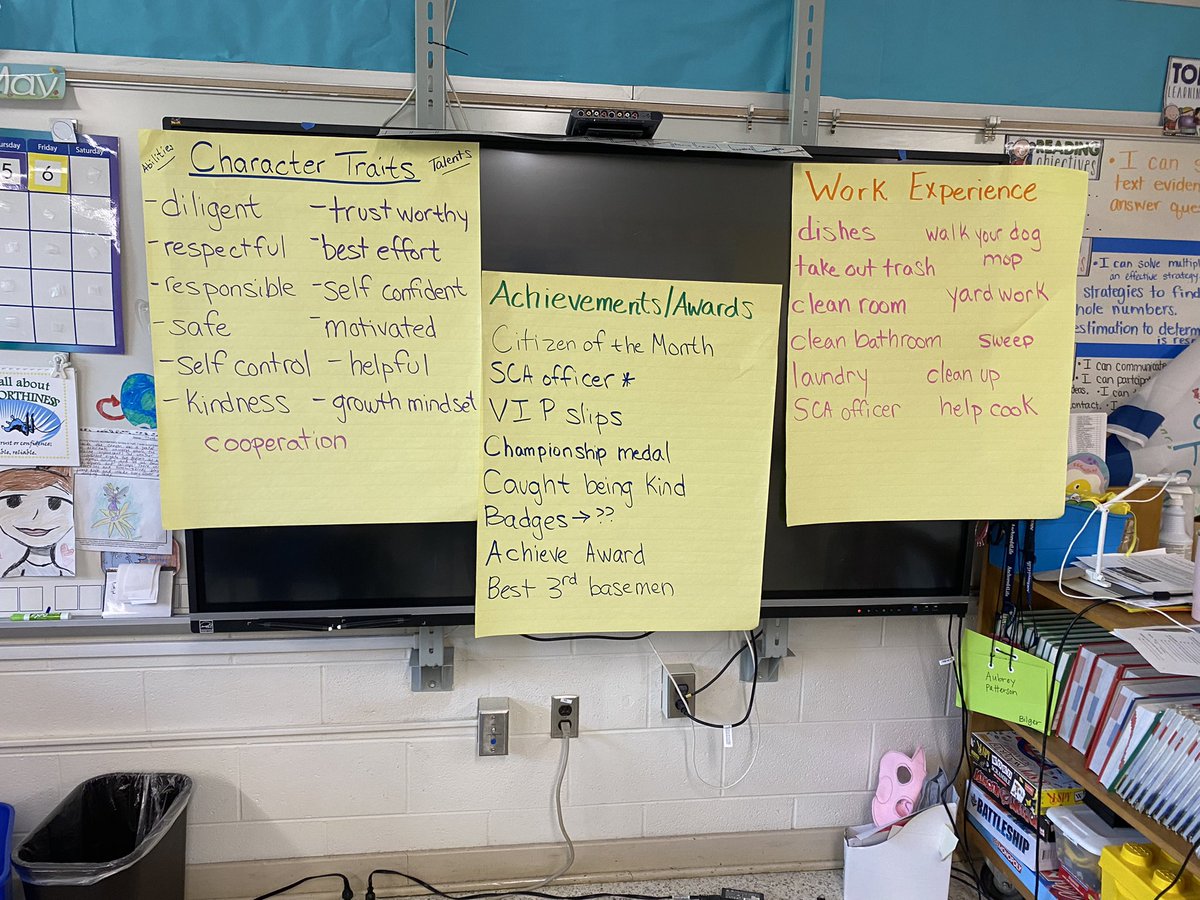 May
Friday
Saturday
5
6
all about
trust or confidence;
reliable.
Abilities
Character Traits
Talents
-diligent
-trustworthy
-respectful
-best effort
-responsible
-self confident
-safe
-motivated
-self control
-helpful
-Kindness
-growth mindset
cooperation
Achievements/Awards
Citizen of the Month
SCA officer *
VIP slips
Championship medal
Caught being Kind
Badges→??
Achieve Award
Best 3rd basemen
Work Experience
dishes
walk your dog
take out trash
mop
clean room
yard work
clean bathroom
sweep
laundry
clean up
SCA officer
help cook
READING
objectives
• I can
text eviden
answer que
• I can solve multip
an effective strategy
strategies to find
hole numbers.
estimation to determ
• I can communicat
• I can particip
Aubrey
Patterson
Bilger
BATTLESHIP